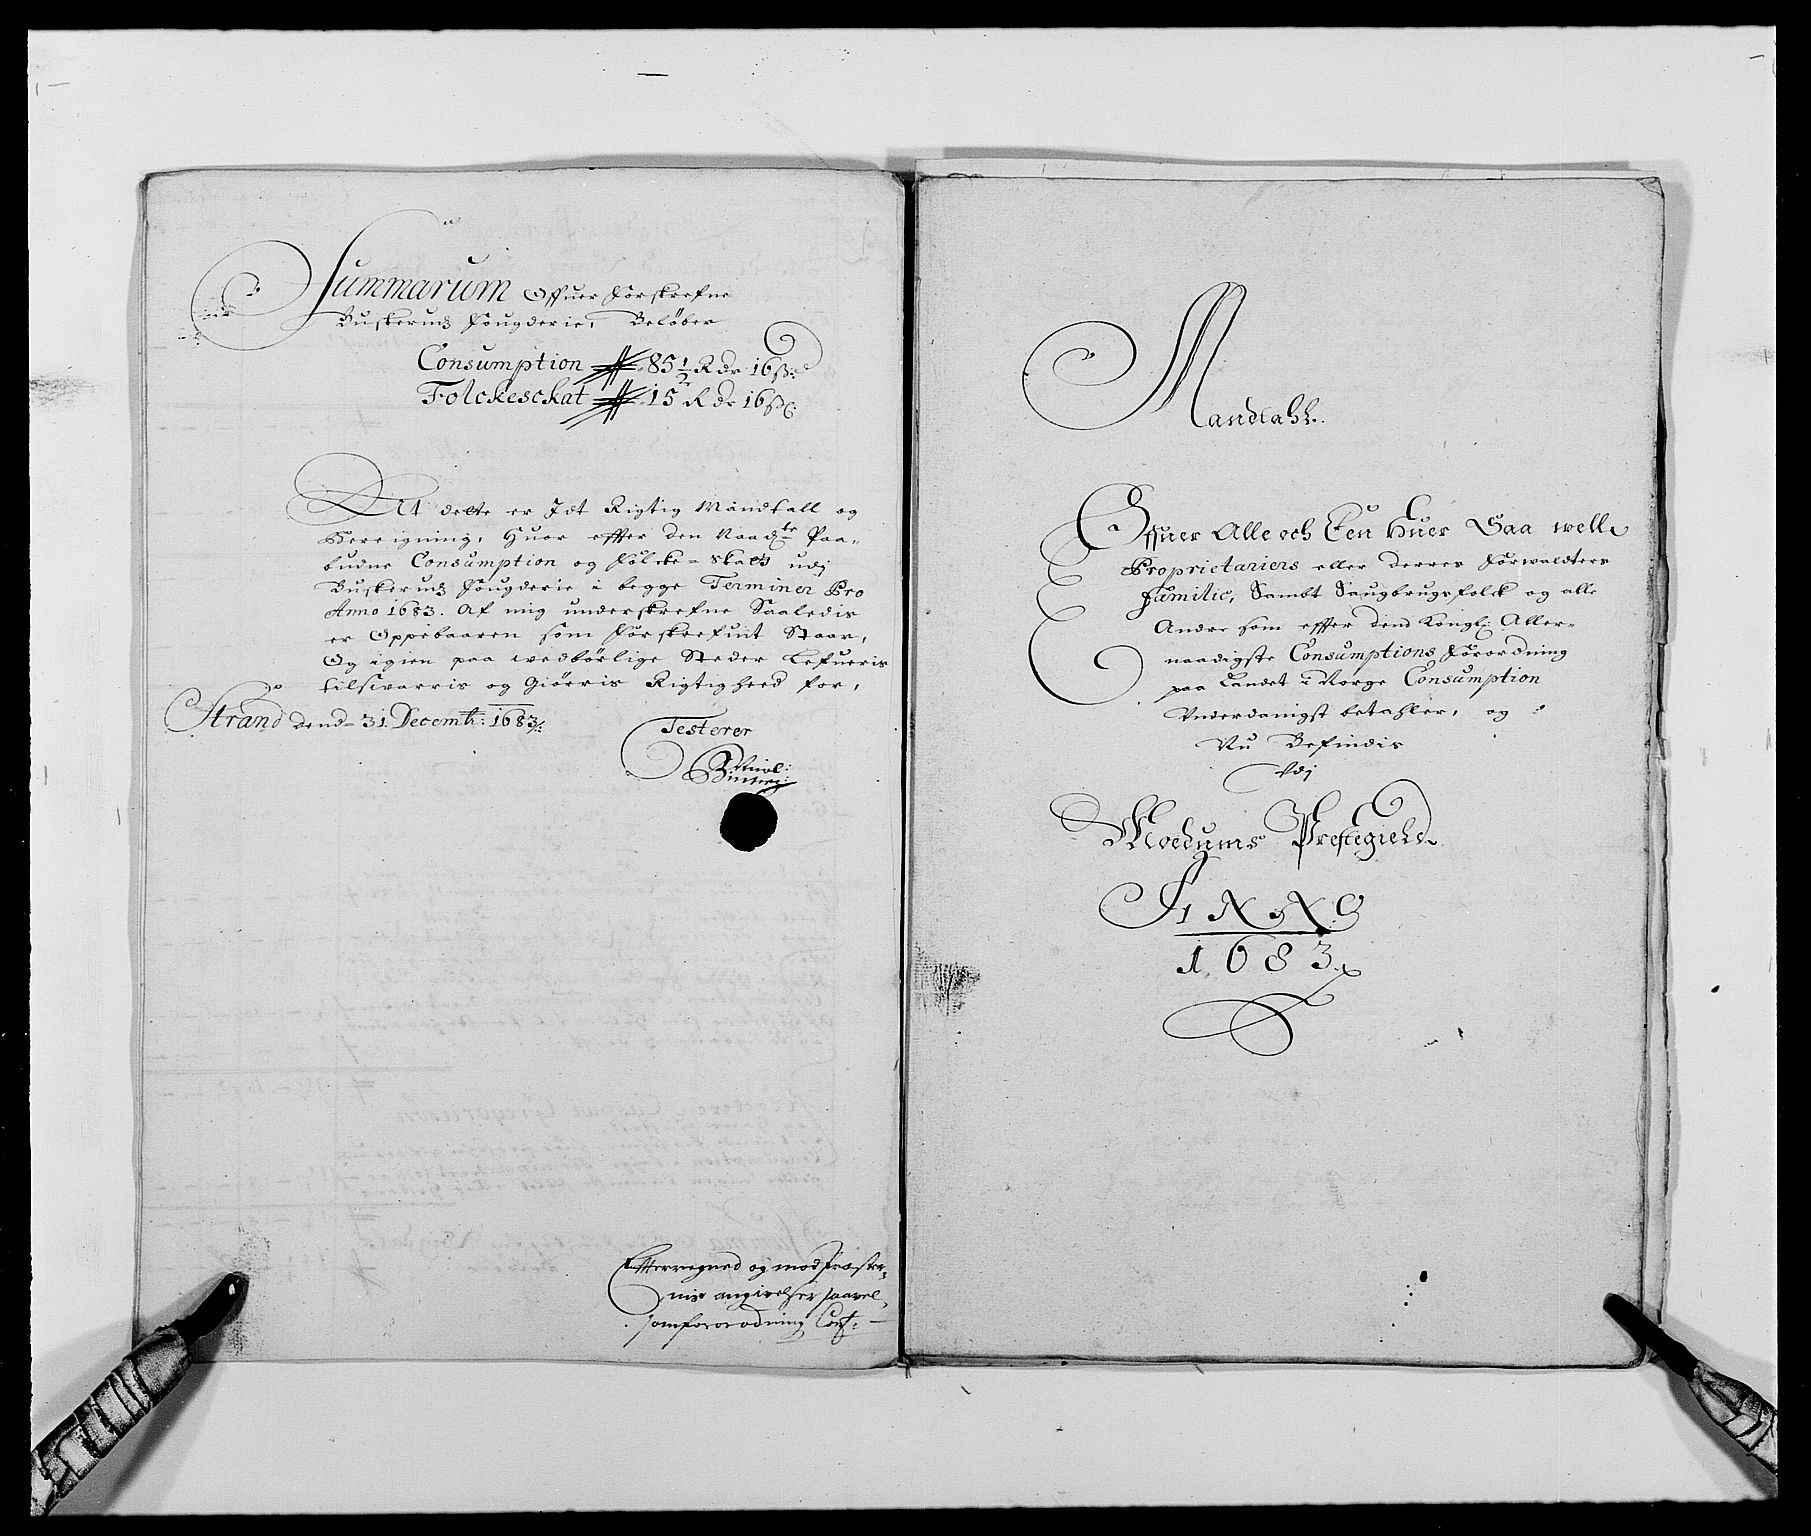 Summarum Offuer Forskrefne
Buskeruds Fougderie, Beløber
Consumption 85 1/2 Rdr 16 ß:
Folckeschat 15 Rdr 16 ß:
At dette er Idt Rigtig Mandtall og
Beregning, Huor effter den Naad:te Paa-
budne Consumption og Folcke-Skatt udj
Buskeruds Fougderie i begge Terminer Pro
Anno 1683. Af mig underskrefne Saaledis
er Oppebaaren som Forskrefuit Staar,
Og igien paa wedbørlige Steder Lefueris
tilswarris og Giørris Rigtighed for,
Strand dend 31 Decemb: 1683
Testerer
Efterregned og mod Præster-
nis angivelser saavel
som forordning Conf:
Mandtahl
Offuer Alle och Een Huer Saa well
Proprietariers eller derres Forwaldters
Familie, Sambt Saugbrugsfolck og alle
Andre som effter dend Kongl: Aller-
naadigste Consumptions Forordning
paa Landet i Norge Consumption
Vnderdanigst betahler, og
Nu Befindis
Vdj
Moedums Prestegield
ANNO
1683